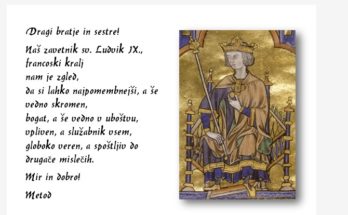 Dragi bratje in sestre!
Naš zavetnik sv. Ludvik IX.,
francoski kralj
nam je zgled,
da si lahko najpomembnejši, a še
vedno skromen,
bogat, a še vedno v uboštvu,
vpliven, a služabnik vsem,
globoko veren, a spoštljiv do
drugače mislečih.
Mir in dobro!
Metod